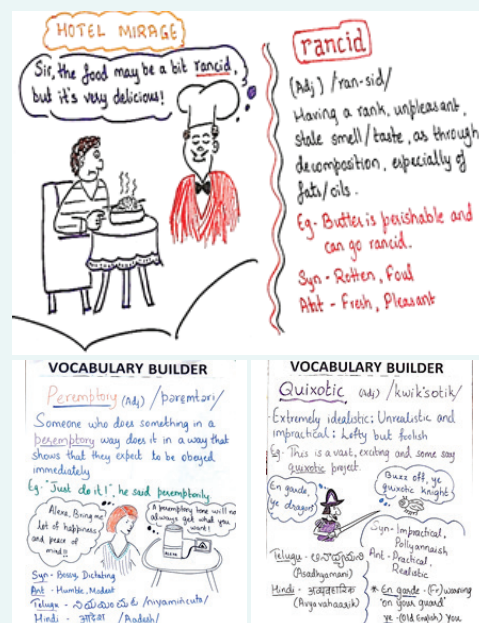 HOTEL MIRAGE
Sir, the food may be a bit rancid,
but it's very delicious!
rancid
(Adj) /ran-sid/
Having a rank, unpleasant,
stale smell/taste, as through
decomposition, especially of
fats/oils.
Eg- Butter is perishable and
can go rancid.
Syn - Rotten, Foul
Abt - Fresh, Pleasant
VOCABULARY BUILDER
Peremptory (Adj) /pəremtəri/
Someone who does something in a
peremptory way does it in a way that
shows that they expect to be obeyed
immediately
Eg: "Just do it!", he said peremptorily
Alexa, Bring me
lot of happiness
and peace of
mind!!
A peremptory tone will no
always get what you
want!
ALEXA
Syn - Bossy, Dictating
Ant - Humble, Modest
Telugu - /niyamincuta/
Hindi - आदेश /Aadesh/
VOCABULARY BUILDER
Quixotic (adj) /kwik'sotik/
- Extremely idealistic; Unrealistic and
impractical; Lofty but foolish
Eg- This is a vast, exciting and some say
quixotic project.
En garde,
ye dragon!
Buzz off, ye
quixotic knight!
Syn - Impractical,
Pollyannaish
Ant - Practical,
Realistic
Telugu -
(Asadhyamani)
Hindi - अव्यवहारिक
(Avyavahaarik)
* En garde - (Fr) warning
'on your guard'
ye - (Old English) You